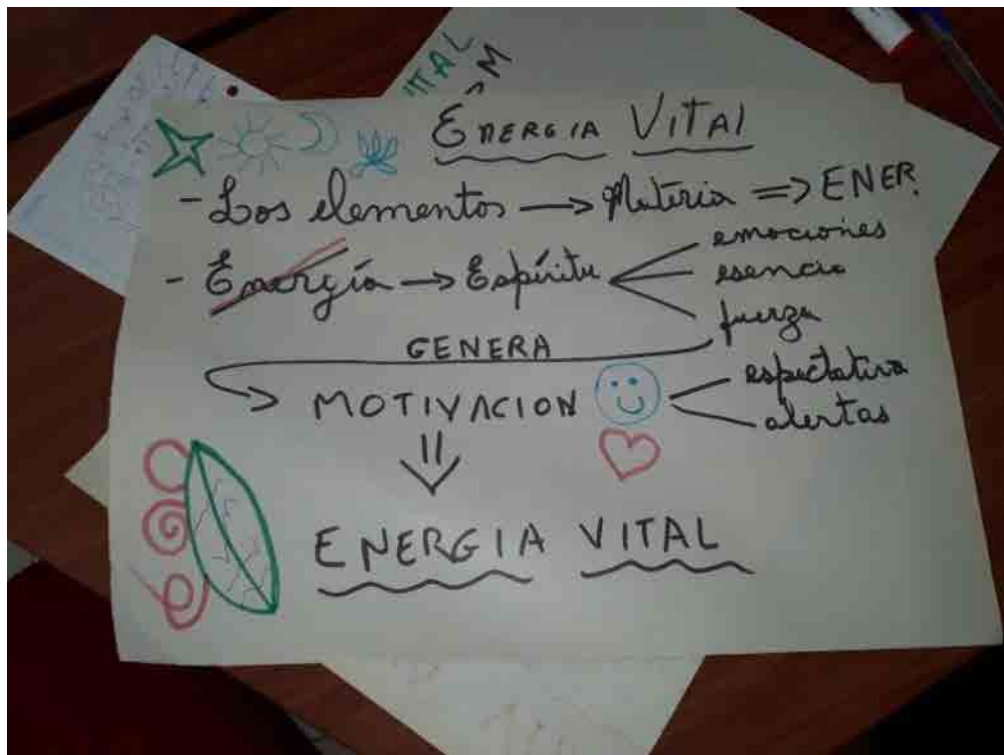 ITAL
M
ENERGIA VITAl
- Los elementos → Materia ⇒ ENER.
- Energía → Espíritu
emociones
esencia
fuerza
GENERA
MOTIVACION
espectativa
alertas
ENERGIA VITAL